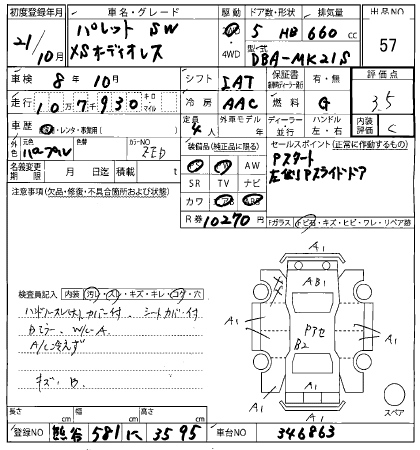 初度登録年月 車名・グレード 駆動 ドア数・形状 排気量 出品NO
21/10月 パレット SW 2WD 5 HB 660 cc 57
XS ホーディオレス 4WD 型・式 DBA-MK21S
車検 8年 10月 シフト IAT 保証書 有・無 評価点
走行 10万7千930 キロ マイル 冷房 AAC 燃料 G 3.5
車歴 レンタ・事業用( ) 定員 4人 外車モデル 年 ディーラー 並行 ハンドル 左・右 内装評価 C
外 元色 色替 カラーNO ZED
装備品(純正品に限る) セールスポイント(正常に作動するもの)
名義変更期限 月 日迄 積載 t
AW Pスタート
SR TV ナビ 左後Pスライドドア
カワ エアB ABS
注意事項(欠品・修復・不具合箇所および改造)
R券 10270円 Fガラス トビ石・キズ・ヒビ・ワレ・リペア跡
A1
A1 AB1 A1
A1 A1
Pアセ
B2
A1 A1
A1
スペア
検査員記入 内装 汚レ・スレ・キズ・キレ・コゲ・穴
ハンドルスレ カバー付 シートカバー付
A/C冷えず
キズ・B
長さ cm 幅 cm 高さ cm
登録NO 熊谷 581 に 3595 車台NO 346863